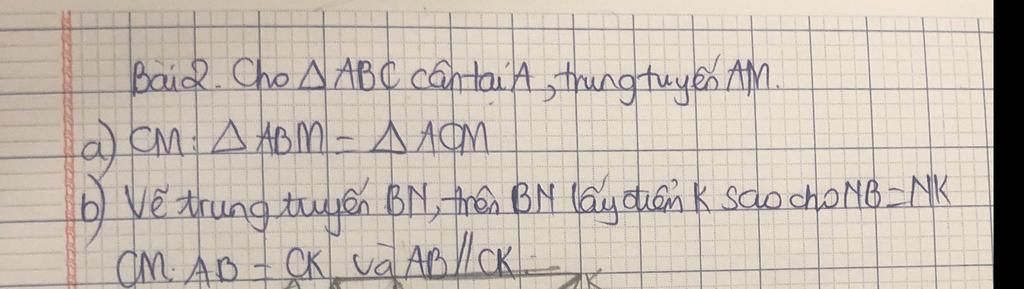 Bài 2. Cho △ ABC cân tại A, trung tuyến AM.
a) CM: △ ABM = △ ACM
b) Vẽ trung tuyến BN, trên BN lấy điểm K sao cho NB = NK
CM: AB = CK và AB // CK
K